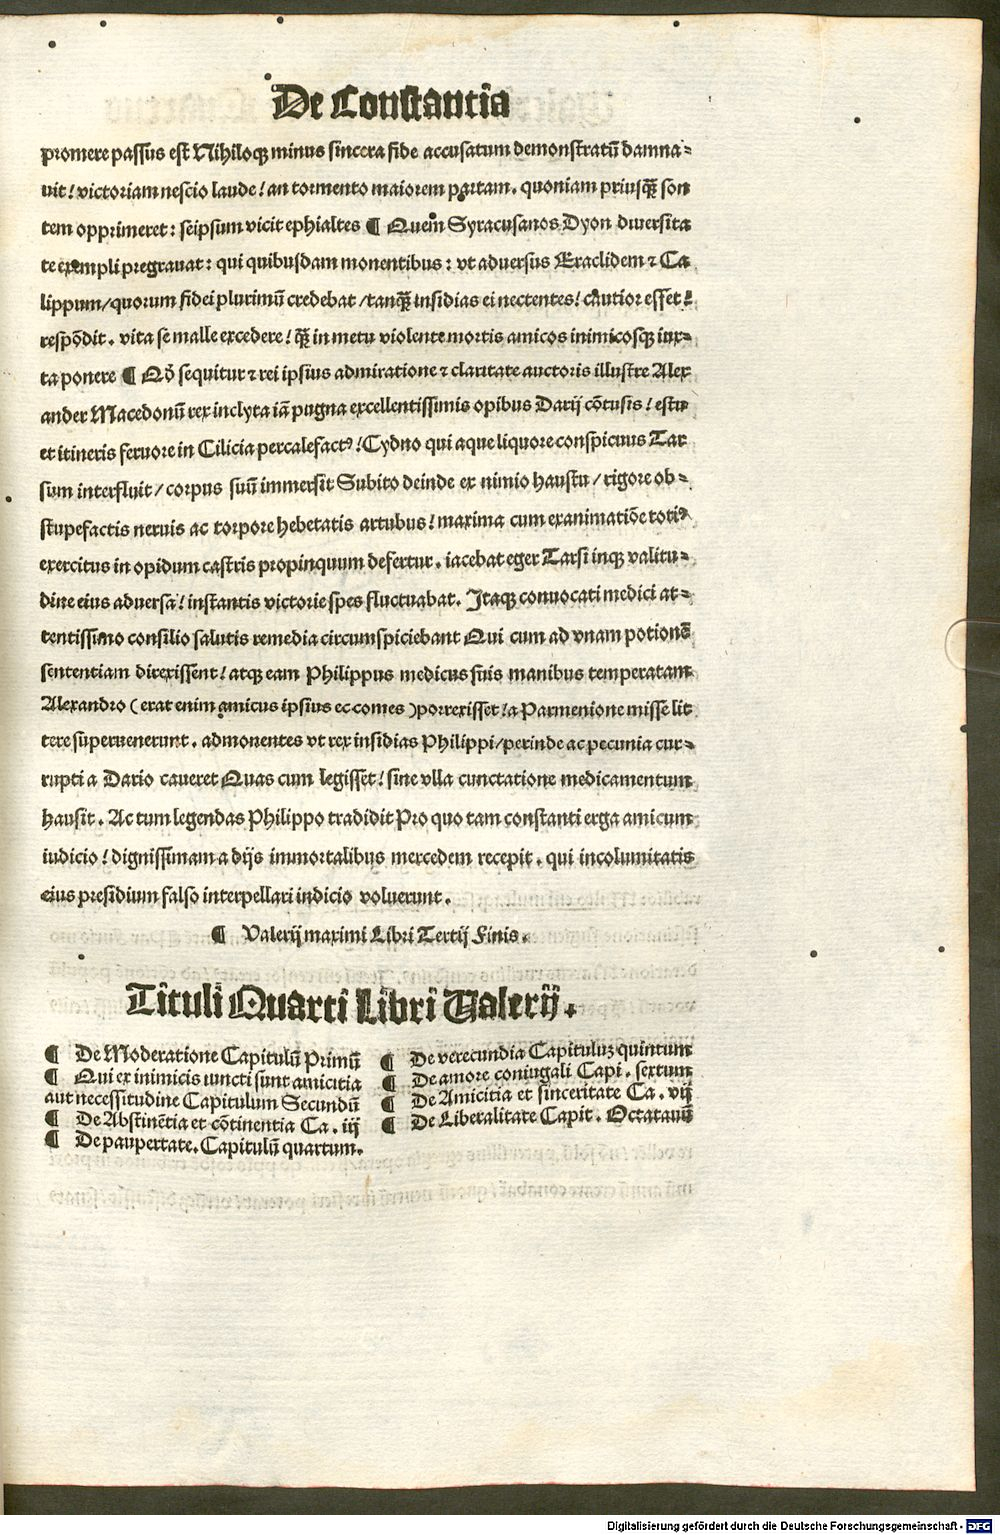 De Constantia
promere passus est Nihiloqꝫ minus sincera fide accusatum demonstratū damna⸗
uit! victoriam nescio laude! an tormento maiorem partam. quoniam priusqꝫ̄ son
tem opprimeret: seipsum vicit ephialtes ¶ Quem̄ Syracusanos Dyon diuersita
te exempli pregrauat: qui quibusdam monentibus: vt aduersus Eraclidem ⁊ Ca
lippum/quorum fidei plurimū credebat /tanqꝫ̄ insidias ei nectentes! cautior esset!
respōdit. vita se malle excedere! qꝫ̄ in metu violente mortis amicos inimicosqꝫ iux⸗
ta ponere ¶ Qō sequitur ⁊ rei ipsius admiratione ⁊ claritate auctoris illustre Alex
ander Macedonū rex inclyta iā pugna excellentissimis opibus Darij cōtusis! estu
et itineris feruore in Cilicia percalefactꝰ! Cydno qui aque liquore conspicuus Tar
sum interfluit/ corpus suū immersit Subito deinde ex nimio haustu / rigore ob⸗
stupefactis neruis ac torpore hebetatis artubus! maxima cum exanimatiōe totiꝰ
exercitus in opidum castris propinquum defertur. iacebat eger Tarsi inqꝫ valitu⸗
dine eius aduersa! instantis victorie spes fluctuabat. Itaqꝫ conuocati medici at⸗
tentissimo consilio salutis remedia circumspiciebant Qui cum ad vnam potionē
sententiam direxissent! atqꝫ eam Philippus medicus suis manibus temperatam
Alexandro ( erat enim amicus ipsius ec comes ) porrexisset! a Parmenione misse lit
tere superuenerunt. admonentes vt rex insidias Philippi/perinde ac pecunia cur⸗
rupti a Dario caueret Quas cum legisset! sine vlla cunctatione medicamentum
hausit. Ac tum legendas Philippo tradidit Pro quo tam constanti erga amicum
iudicio! dignissimam a dijs immortalibus mercedem recepit. qui incolumitatis
eius presidium falso interpellari indicio voluerunt.
¶ Valerij maximi Libri Tertij Finis.
Tituli Quarti Libri Valerij.
¶ De Moderatione Capitulū Primū
¶ Qui ex inimicis iuncti sunt amicitia
aut necessitudine Capitulum Secundū
¶ De Abstinētia et cōtinentia Ca. iij
¶ De paupertate. Capitulū quartum.
¶ De verecundia Capituluꝫ quintum
¶ De amore coniugali Capi. sextum
¶ De Amicitia et sinceritate Ca. vij
¶ De Liberalitate Capit. Octauū
Digitalisierung gefördert durch die Deutsche Forschungsgemeinschaft - DFG